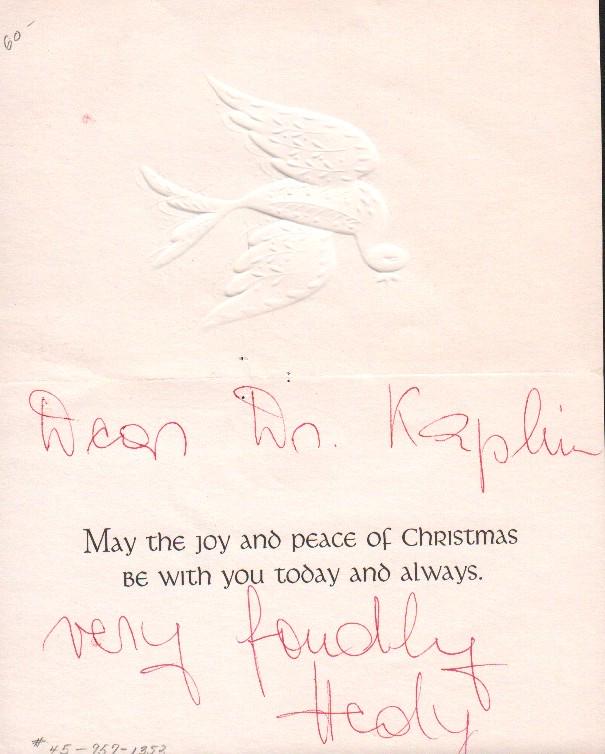 60-
Dear Dr. Kaplin
May the joy and peace of Christmas
be with you today and always.
very fondly
Hedy
# 45-957-1352